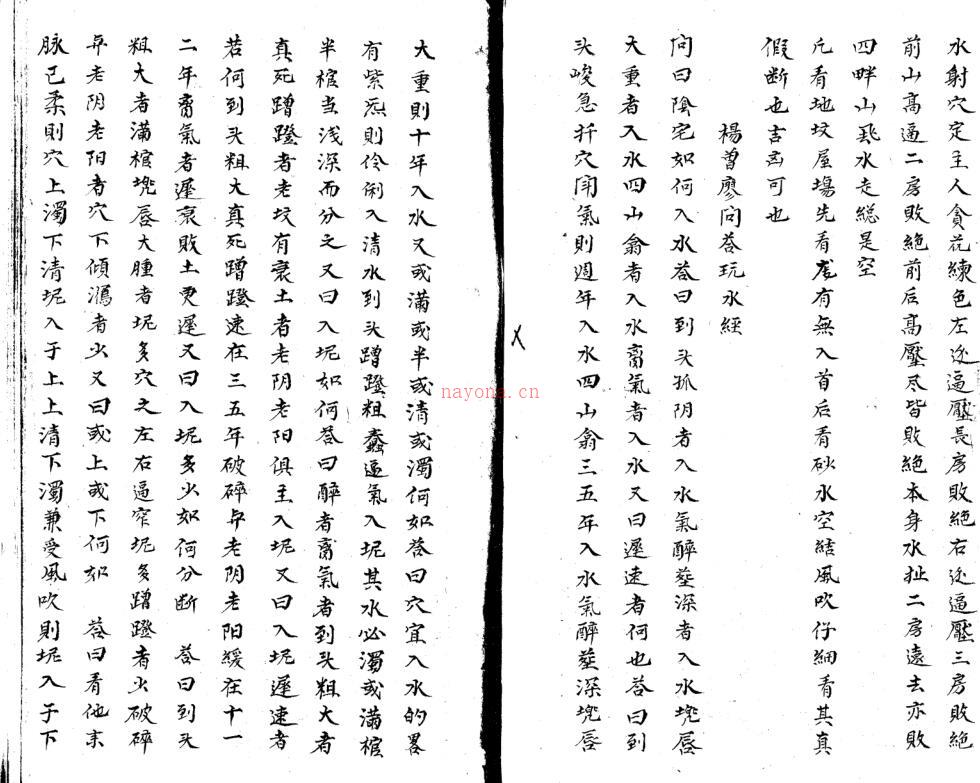 水射穴定主人貪花練色左边逼壓長房敗絕右边逼壓三房敗絕
前山高逼二房敗絕前后高壓尽皆敗絕本身水扯二房遠去亦敗
四畔山飛水走総是空
凢看地坟屋塲先看龙有無入首后看砂水空結風吹仔細看其真
假断也言凶可也
楊曽廖问荅玩水經
问曰陰宅如何入水荅曰到头孤阴者入水氣醉塟深者入水堍唇
大重者入水四山翕者入水脔氣者入水又曰遲速者何也荅曰到
头峻急扦穴闭氣則週年入水四山翕三五年入水氣醉塟深堍唇
大重則十年入水又或满或半或清或濁何如荅曰穴宜入水的畧
有紫炁則伶俐入清水到头蹭蹬粗蠢逼氣入坭其水必濁或满棺
半棺当浅深而分之又曰入坭如何荅曰醉者脔氣者到头粗大者
真死蹭蹬者老坟有衰土者老阴老阳俱主入坭又曰入坭遲速者
若何到头粗大真死蹭蹬速在三五年破碎弁老阴老阳緩在十一
二年脔氣者遲衰敗土更遲又曰入坭多少如何分断 荅曰到头
粗大者满棺堍唇大腫者坭多穴之左右逼窄坭多蹭蹬者少破碎
弁老阴老阳者穴下傾瀉者少又曰或上或下何如 荅曰看他来
脉已柔則穴上濁下清坭入于上上清下濁兼受風吹則坭入于下
nayona.cn